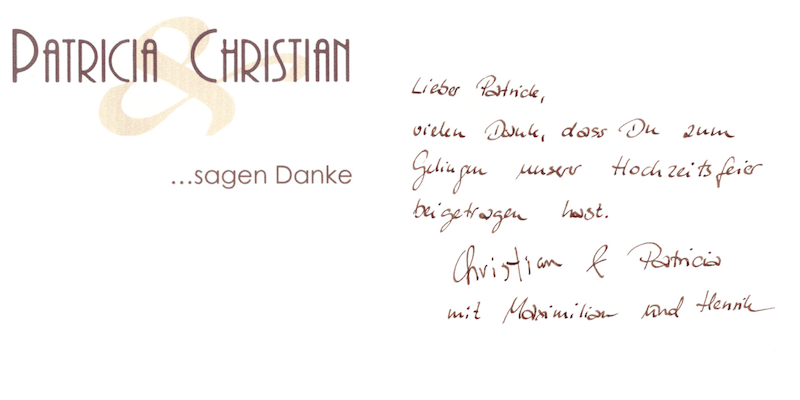 PATRICIA & CHRISTIAN
...sagen Danke
Lieber Patrick,
vielen Dank, dass Du zum
Gelingen unserer Hochzeitsfeier
beigetragen hast.
Christian & Patricia
mit Maximilian und Henrik